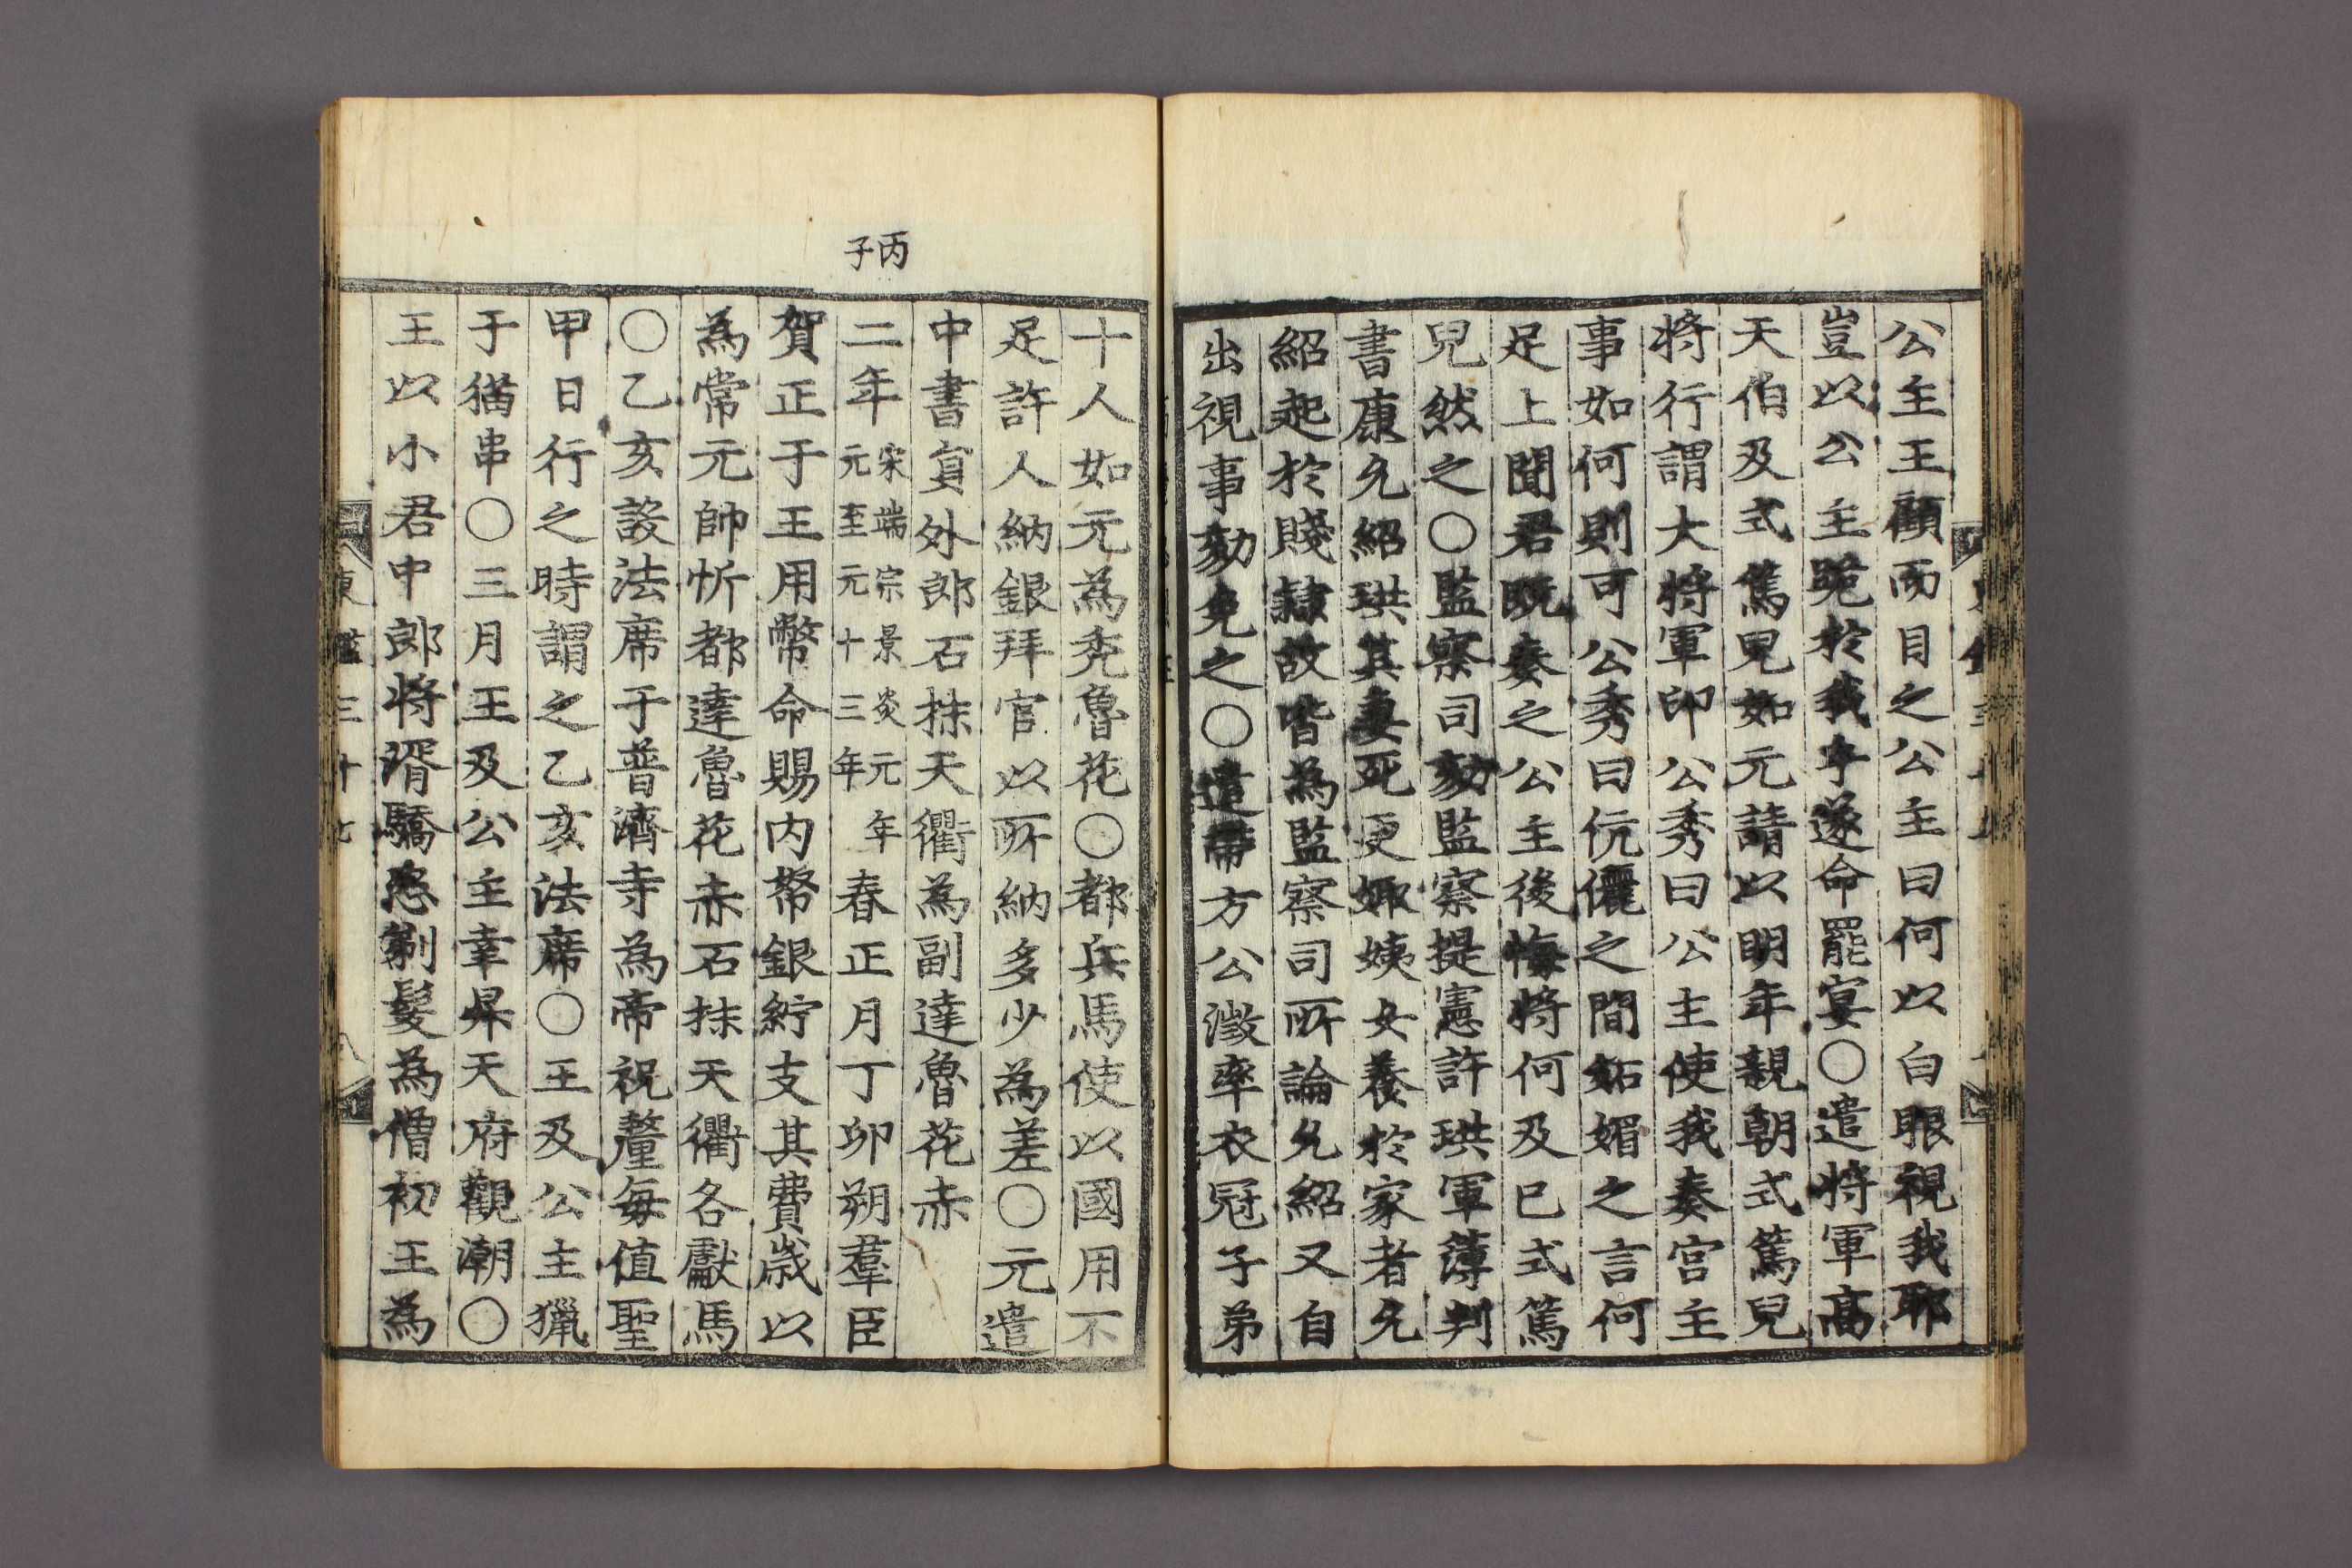 公主王顧而目之公主曰何以白眼視我耶
豈以公主跪於我乎遂命罷宴〇遣將軍高
天伯及式篤兒如元請以明年親朝式篤兒
將行謂大將軍印公秀曰公主使我奏宮主
事如何則可公秀曰伉儷之間妬媚之言何
足上聞君旣奏之公主後悔將何及已式篤
兒然之〇監察司劾監察提憲許珙軍簿判
書康允紹珙其妻死更娵姨女養於家者允
紹起於賤隷故皆為監察司所論允紹又自
出視事劾免之〇遣帶方公澂率衣冠子弟
十人如元為禿魯花〇都兵馬使以國用不
足許人納銀拜官以所納多少為差〇元遣
中書員外郎石抹天衢為副達魯花赤
丙子
二年宋端宗景炎元年元至元十三年春正月丁卯朔羣臣
賀正于王用幣命賜內帑銀紵支其費歲以
為常元帥忻都達魯花赤石抹天衢各獻馬
〇乙亥設法席于普濟寺為帝祝釐每值聖
甲日行之時謂之乙亥法席〇王及公主獵
于猫串〇三月王及公主幸昇天府觀潮〇
王以小君中郎將湑驕恣剃髮為僧初王為
東 鑑三十七 八